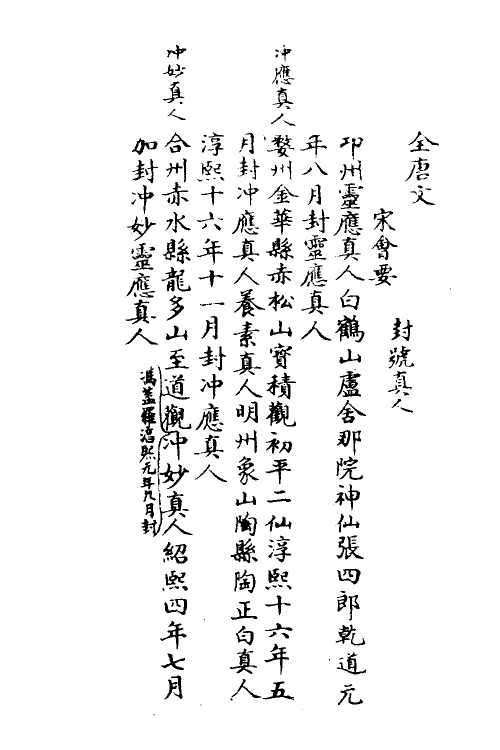 全唐文
宋會要
封號真人
卭州靈應真人白鶴山盧舍那院神仙張四郎乾道元
年八月封靈應真人
冲應真人
婺州金華縣赤松山寳積觀初平二仙淳熙十六年五
月封冲應真人養素真人明州象山陶縣陶正白真人
淳熙十六年十一月封冲應真人
冲妙真人
合州赤水縣龍多山至道觀冲妙真人紹熙四年七月
加封冲妙靈應真人
馮蓋羅淳熙元年九月封